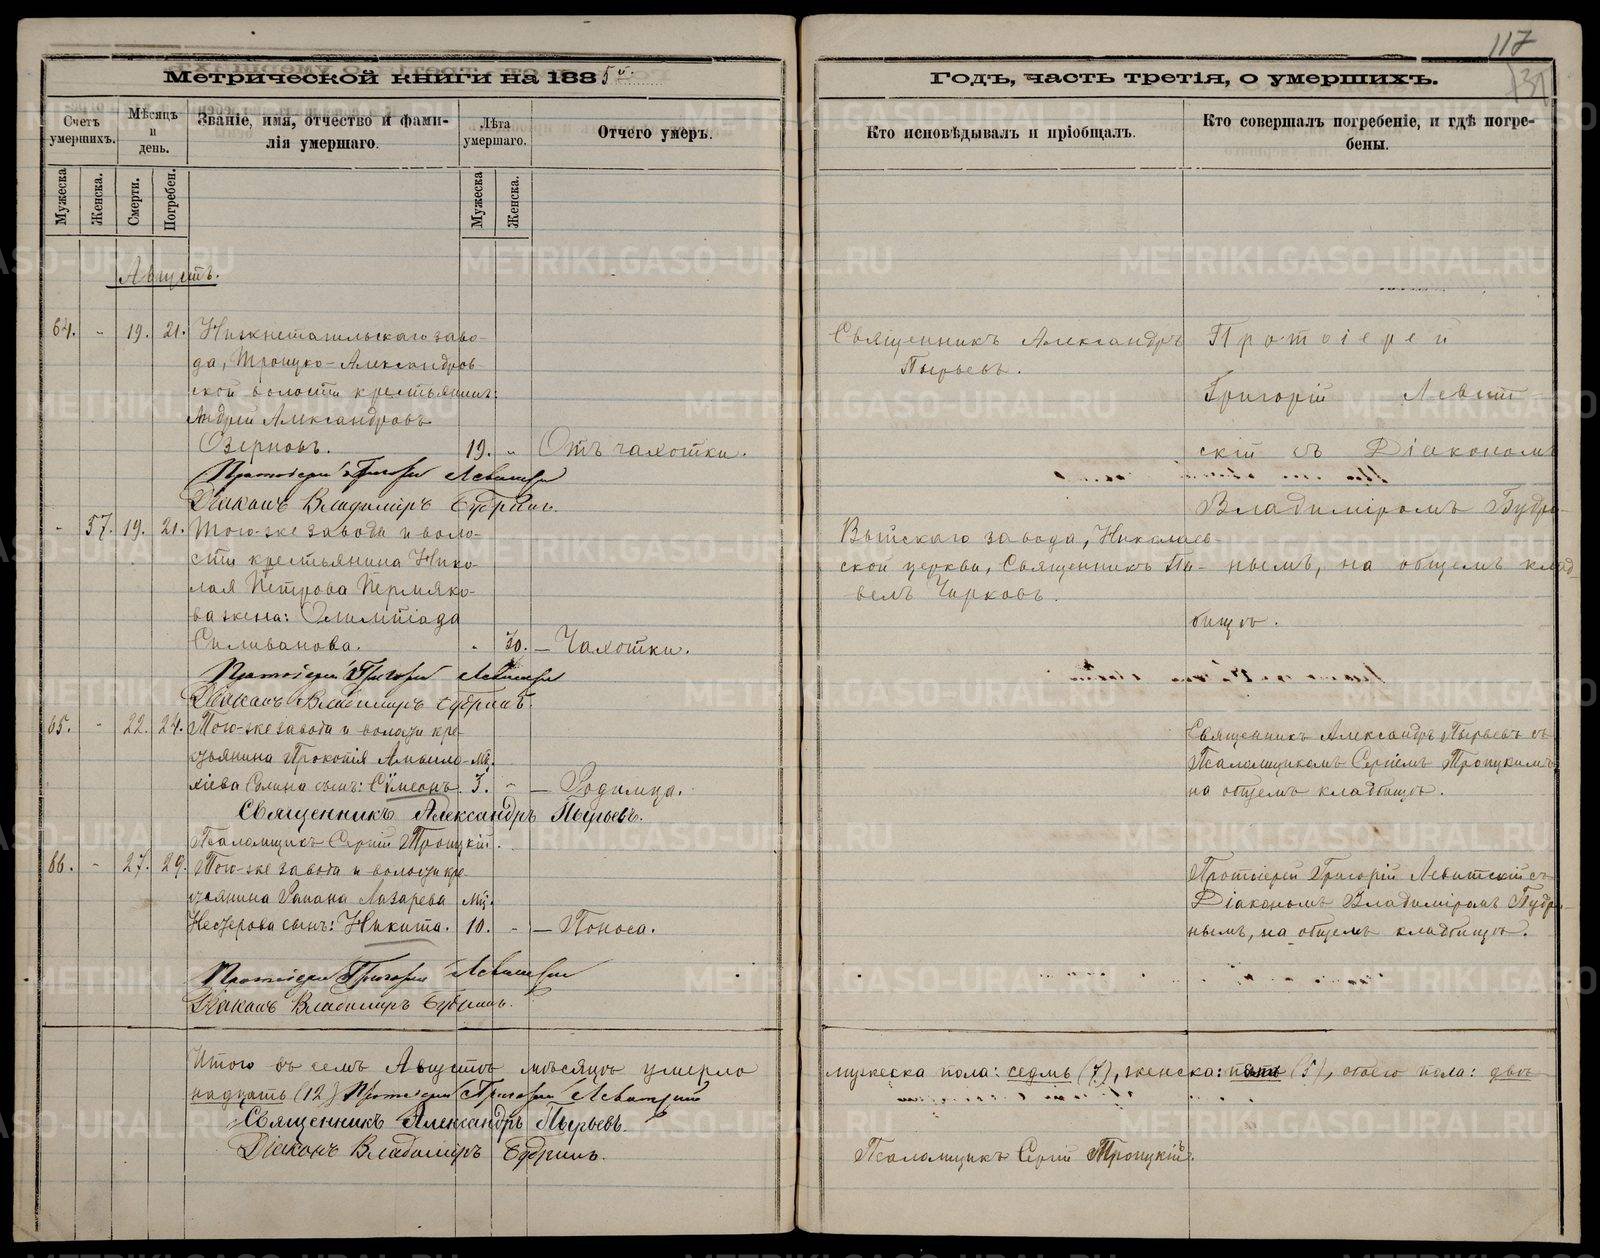 117
131
Метрической книги на 1885й
Годъ, часть третія, о умершихъ.
Счетъ умершихъ.
Мѣсяцъ и день.
Званіе, имя, отчество и фами-
лія умершаго.
Лѣта умершаго.
Отчего умеръ.
Кто исповѣдывалъ и пріобщалъ.
Кто совершалъ погребеніе, и гдѣ погре-
бены.
Мужеска
Женска.
Смерти.
Погребен.
Мужеска
Женска.
Августъ.
64. - 19. 21. Нижнетагильскаго заво-
да, Троицко-Александров-
ской волости крестьянинъ:
Андрей Александровъ
Озерновъ. 19. „ Отъ чахотки.
Священникъ Александръ
Пырьевъ.
Протоіерей
Григорій Левит
скій съ Діакономъ
Владиміромъ Будри-
нымъ, на общемъ клад
бищѣ.
Протоіерей Григорій Левитскій
Діаконъ Владиміръ Будринъ.
- 57. 19. 21. Того-же завода и воло-
сти крестьянина Нико-
лая Петрова Пермяко-
ва жена: Олимпіада
Силиванова. „ 30. — Чахотки.
Выйскаго завода, Николаев-
ской церкви, Священникъ Па-
велъ Чирковъ.
Протоіерей Григорій Левитскій
Діаконъ Владиміръ Будринъ.
65. - 22. 24. Того-же завода и волости кре-
стьянина Прокопія
хіева сынъ: Сѵмеонъ. Мѣ. 3. „ — Родимца.
Священникъ Александръ Пырьевъ съ
Псаломщикомъ Сергіемъ Троицкимъ
на общемъ кладбищѣ.
Священникъ Александръ Пырьевъ.
Псаломщикъ Сергій Троицкій.
66. - 27. 29. Того-же завода и волости кре-
стьянина Лазарева Мц.
Нестерова сынъ: Никита. 10. - — Поноса.
Протоіерей Григорій Левитскій съ
Діакономъ Владиміромъ Будри-
нымъ, на общемъ кладбищѣ.
Протоіерей Григорій Левитскій
Діаконъ Владиміръ Будринъ.
Итого въ семъ Августѣ мѣсяцѣ умерло мужеска пола: седмь (7), женска: пять (5), обоего пола: двѣ
надцать (12) Протоіерей Григорій Левитскій
Священникъ Александръ Пырьевъ.
Діаконъ Владиміръ Будринъ.
Псаломщикъ Сергій Троицкій.
METRIKI.GASO-URAL.RU